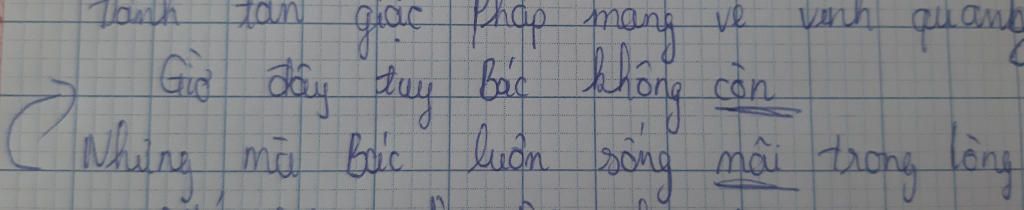 Đánh tan giặc Pháp mang về vinh quang
Giờ đây tuy Bác không còn
Nhưng mà Bác luôn sống mãi trong lòng